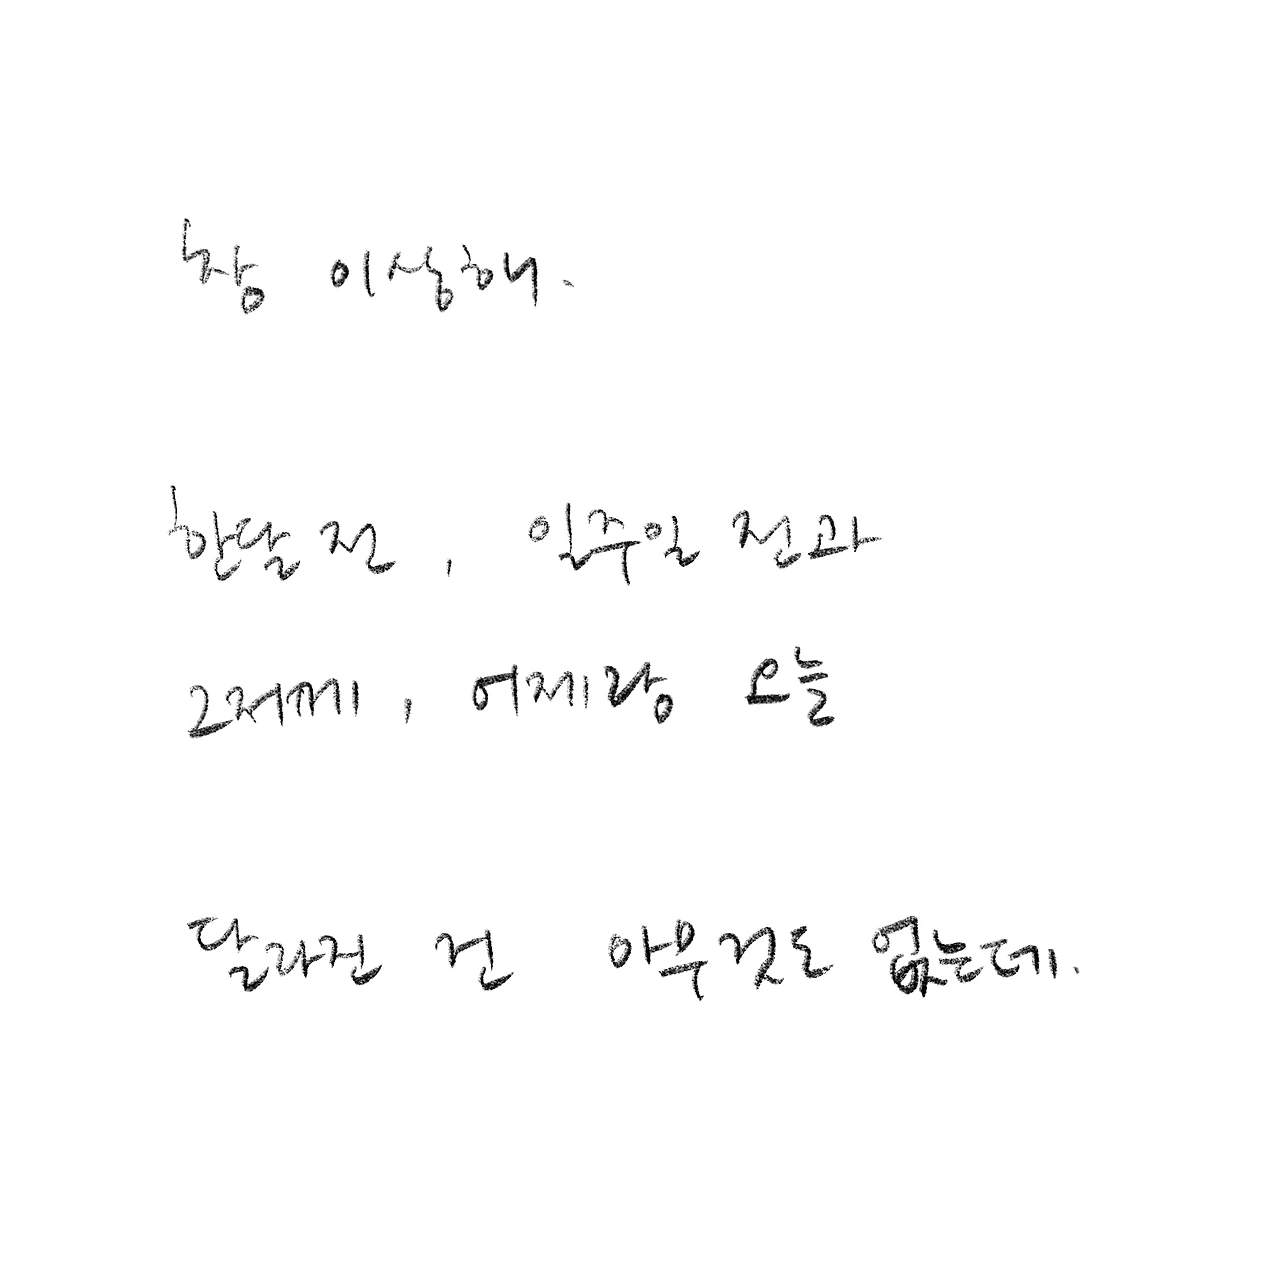 참 이상해.
한달 전, 일주일 전과
그저께, 어제랑 오늘
달라진 건 아무것도 없는데.